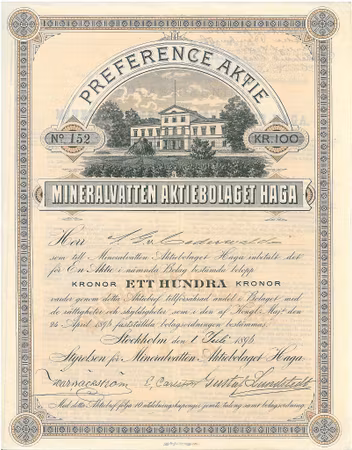 PREFERENCE AKTIE
No. 152
KR. 100
MINERALVATTEN AKTIEBOLAGET HAGA
Herr
som till Mineralvatten Aktiebolaget Haga inbetalt det
för En Aktie i nämnda Bolag bestämda belopp
KRONOR ETT HUNDRA KRONOR
varder genom detta Aktiebref tillförsäkrad andel i Bolaget med
de rättigheter och skyldigheter som i den af Kongl. Maj:t den
April fastställda bolagsordningen bestämmas.
Stockholm den 1 Juli
Styrelsen för Mineralvatten Aktiebolaget Haga
Gustaf Lundstedt
Med detta Aktiebref följa 10 utdelningskuponger jemte talong samt bolagsordning.